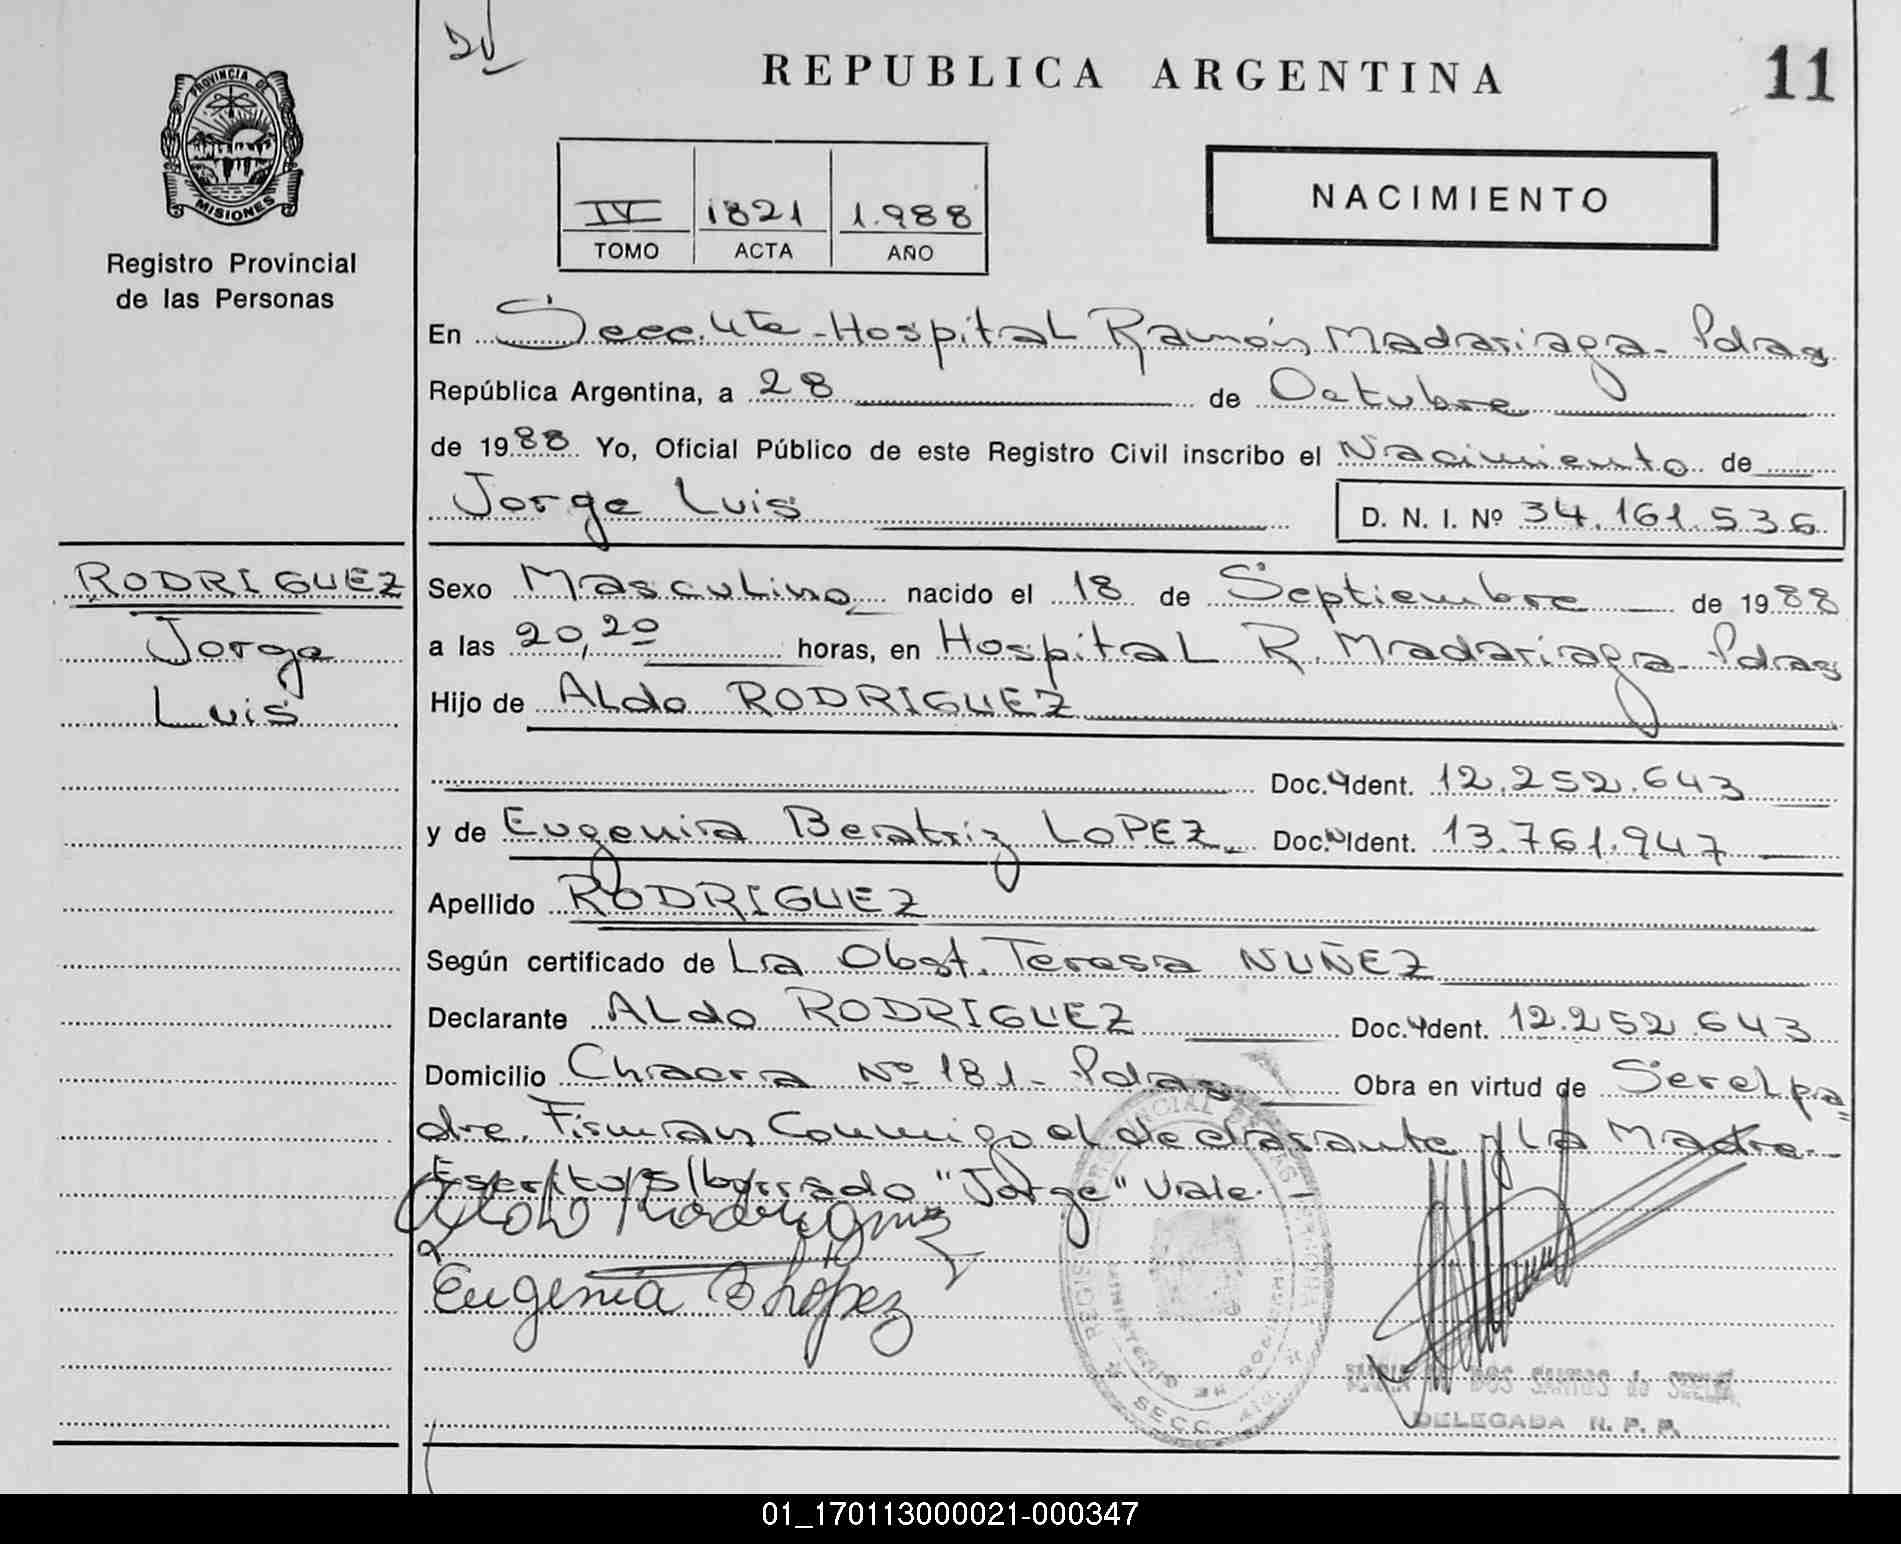 REPUBLICA ARGENTINA
11
PROVINCIA DE
MISIONES
Registro Provincial
de las Personas
IV 1821 1.988
TOMO ACTA AÑO
NACIMIENTO
En Secc. 4ta - Hospital Ramón Madariaga - Pdas
República Argentina, a 28 de Octubre
de 1988 Yo, Oficial Público de este Registro Civil inscribo el Nacimiento de
Jorge Luis
D. N. I. Nº 34.161.536
RODRIGUEZ
Jorge
Luis
Sexo Masculino nacido el 18 de Septiembre de 1988
a las 20,20 horas, en Hospital R. Madariaga - Pdas
Hijo de Aldo RODRIGUEZ
Doc. Ident. 12.252.643
y de Eugenia Beatriz LOPEZ Doc. Ident. 13.761.947
Apellido RODRIGUEZ
Según certificado de La Obst. Teresa NUÑEZ
Declarante Aldo RODRIGUEZ Doc. Ident. 12.252.643
Domicilio Chacra Nº 181 - Pdas Obra en virtud de Ser el pa=
dre. Firman Conmigo el declarante y la Madre.-
Escrito s/borrado "Jorge" Vale.-
Aldo Rodriguez
Eugenia B Lopez
SECC. 4ta
DOS SANTOS de
DELEGADA R. P. P.
01_170113000021-000347